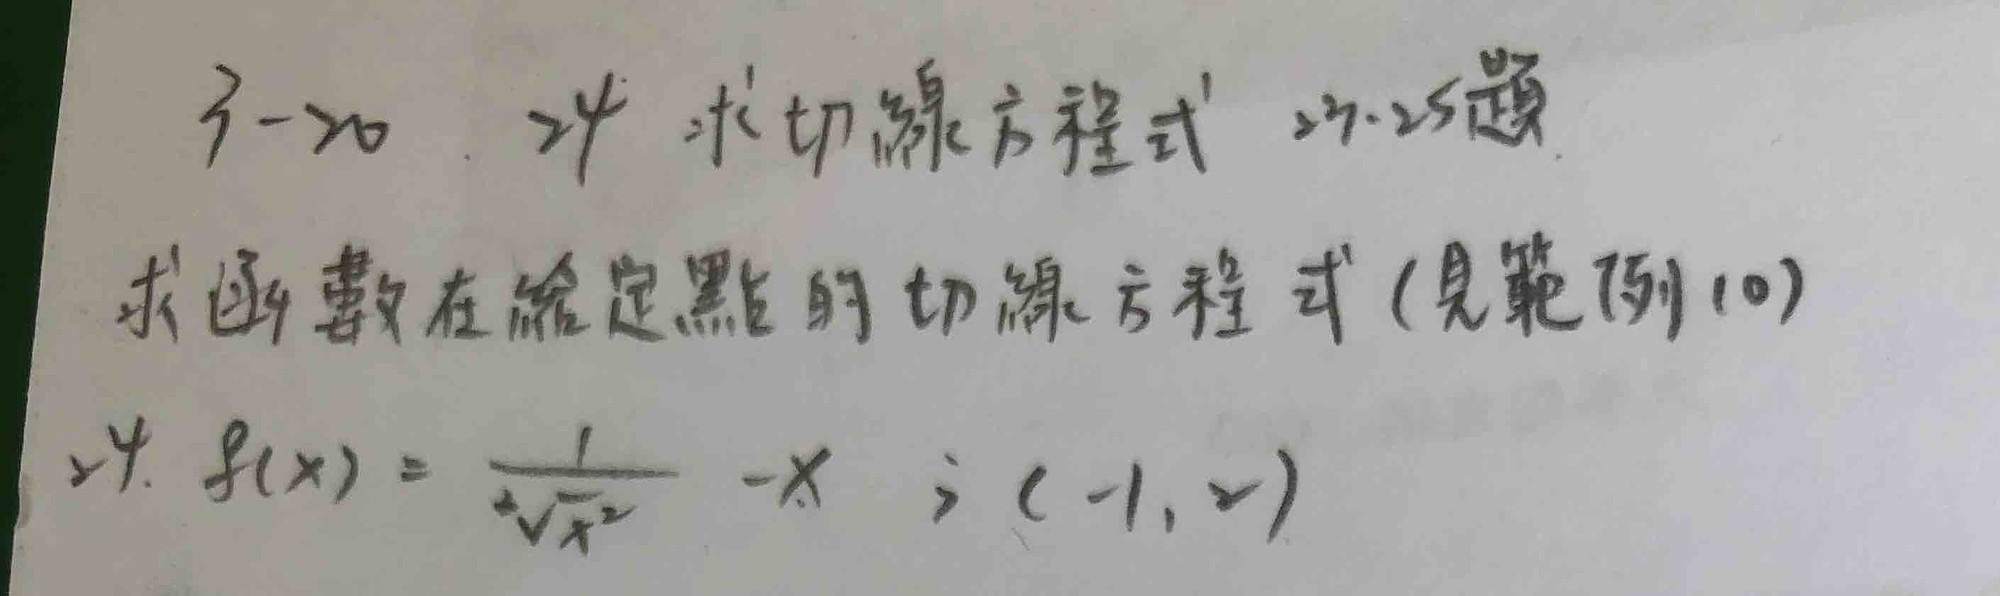 3-20 24 求切線方程式 23.25題.
求函數在給定點的切線方程式(見範例10)
24. f(x) = 1/³√x² -x ; (-1, 2)